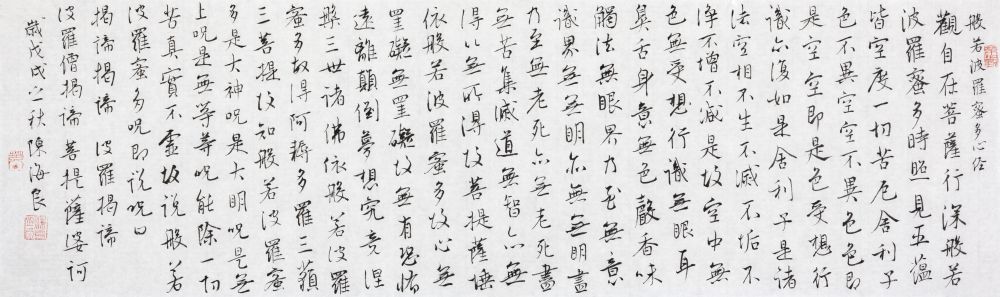 般若波羅蜜多心经
觀自在菩薩行深般若
波羅蜜多時照見五蘊
皆空度一切苦厄舍利子
色不異空空不異色色即
是空空即是色受想行
識亦復如是舍利子是諸
法空相不生不滅不垢不
淨不增不減是故空中無
色無受想行識無眼耳
鼻舌身意無色聲香味
觸法無眼界乃至無意
識界無無明亦無無明盡
乃至無老死亦無老死盡
無苦集滅道無智亦無
得以無所得故菩提薩埵
依般若波羅蜜多故心無
罣礙無罣礙故無有恐怖
遠離顛倒夢想究竟涅
槃三世諸佛依般若波羅
蜜多故得阿耨多羅三藐
三菩提故知般若波羅蜜
多是大神呪是大明呪是無
上呪是無等等呪能除一切
苦真實不虛故說般若
波羅蜜多呪即說呪曰
揭諦揭諦波羅揭諦
波羅僧揭諦菩提薩婆訶
歲戊戌之秋陳海良